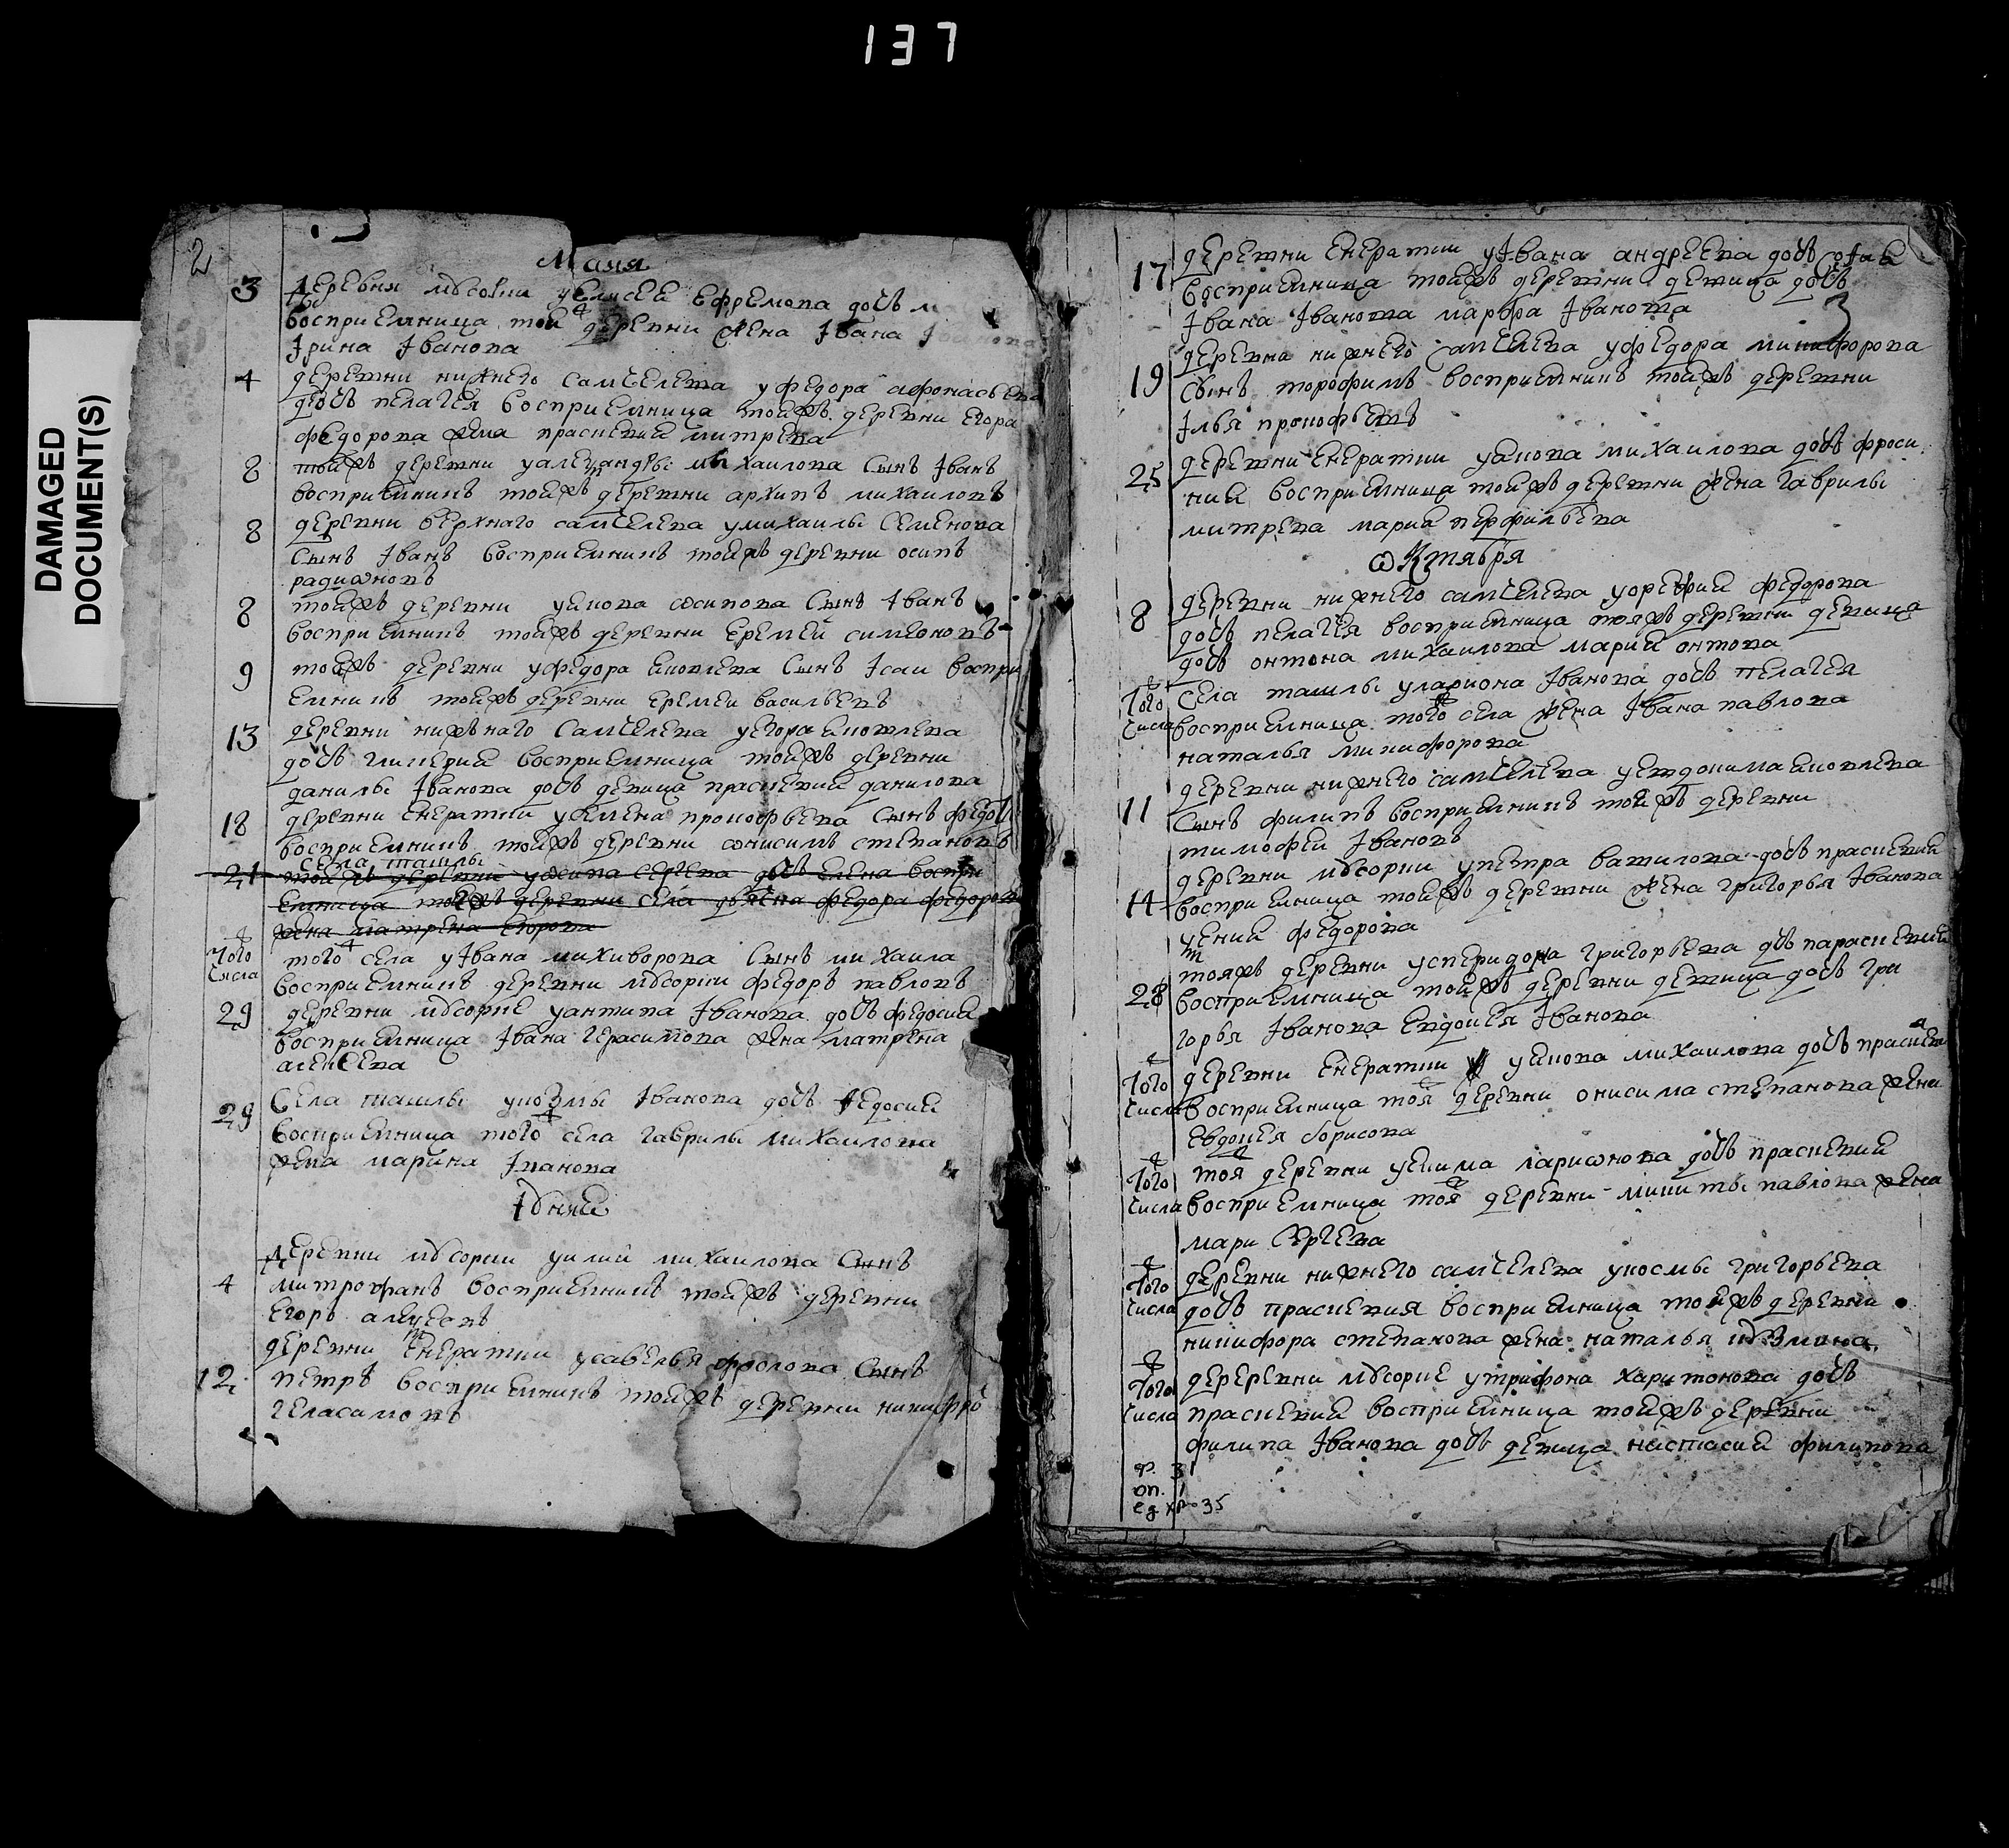 137
DAMAGED
DOCUMENT(S)
2
Маия
3 деревня мусорки уелисея ефремова дочь
восприемница той деревни жена Iвана
Iрина Iванова
4 деревни нижнего самчелева уфедора афонасьева
дочь пелагея восприемница тойжъ деревни егора
федорова жена праскевия митрева
8 тойжъ деревни уалександры михаилова сынъ Iванъ
восприемникъ тойжъ деревни архипъ михаиловъ
8 деревни верхнаго самчелева умихаилы семенова
сынъ Iванъ восприемникъ тойжъ деревни осипъ
радиѡновъ
8 тойжъ деревни уякова ѡсипова сынъ Iванъ
восприемникъ тойжъ деревни еремей симеоновъ
9 тойжъ деревни уфедора яковлева сынъ Iсаи воспри
емникъ тойжъ деревни еремеи васильевъ
13 деревни нижнаго самчелева уегора яковлева
дочь гликерия восприемница тойжъ деревни
данилы Iванова дочь девица праскевия данилова
18 деревни кератки усемена прокофьева сынъ федотъ
восприемникъ тойжъ деревни ѡнисимъ степановъ
села ташлы
21 тойжъ деревни уѡсипа сергева дочь елена воспри
емница тойжъ деревни села дьячка федора федорова
жена матрена егорова
того числа того села уIвана никиворова сынъ михаила
восприемникъ деревни мусорки федоръ павловъ
29 деревни мусорке уантипа Iванова дочь федосия
восприемница Iвана герасимова жена матрена
алексева
29 села ташлы укозмы Iванова дочь федосия
восприемница того села гаврилы михаилова
жена марина Iванова
Iюния
4 деревни мусорки уилии михаилова сынъ
митрофанъ восприемникъ тойжъ деревни
егоръ алексевъ
12 деревни кератки усавелья фролова сынъ
петръ восприемникъ тойжъ деревни никифоръ
геласимовъ
3
17 деревни кератки уIвана андреева дочь софия
восприемница тойжъ деревни девица дочь
Iвана Iванова марфа Iванова
19 деревна нижнего самчелева уфедора никифорова
сынъ торофимъ восприемникъ тойжъ деревни
Iлья прокофьевъ
25 деревни кератки уякова михаилова дочь фроси
ния восприемница тойжъ деревни жена гаврилы
митрева мария перфильева
ѡктября
8 деревни нижнего самчелева уорефия федорова
дочь пелагея восприемница тояжъ деревни девица
дочь онтона михаилова мария онтонова
того числа села ташлы улариона Iванова дочь пелагея
восприемница того села жена Iвана павлова
наталья никифорова
11 деревни нижнего самчелева уевдокима яковлева
сынъ филипъ восприемникъ тойжъ деревни
тимофей Iвановъ
14 деревни мусорки упетра вавилова дочь праскевия
восприемница тойжъ деревни жена григорья Iванова
ксения федорова
28 тояжъ деревни успиридона григорьева дочь параскевия
восприемница тойжъ деревни девица дочь гри
горья Iванова евдокея Iванова
того числа деревни кератки уякова михаилова дочь праскева
восприемница тоя деревни онисима степанова жена
евдокея борисова
того числа тоя деревни уекима лариѡнова дочь праскевия
восприемница тоя деревни никиты павлова жена
мари сергева
того числа деревни нижнего самчелева укосмы григорьева
дочь праскевия восприемница тойжъ деревни
никифора степанова жена наталья кузмина
того числа дереревни мусорке утрифона харитонова дочь
праскевия восприемница тойжъ деревни
филипа Iванова дочь девица настасия филипова
ф. 3
оп. 1
ед. хр 35